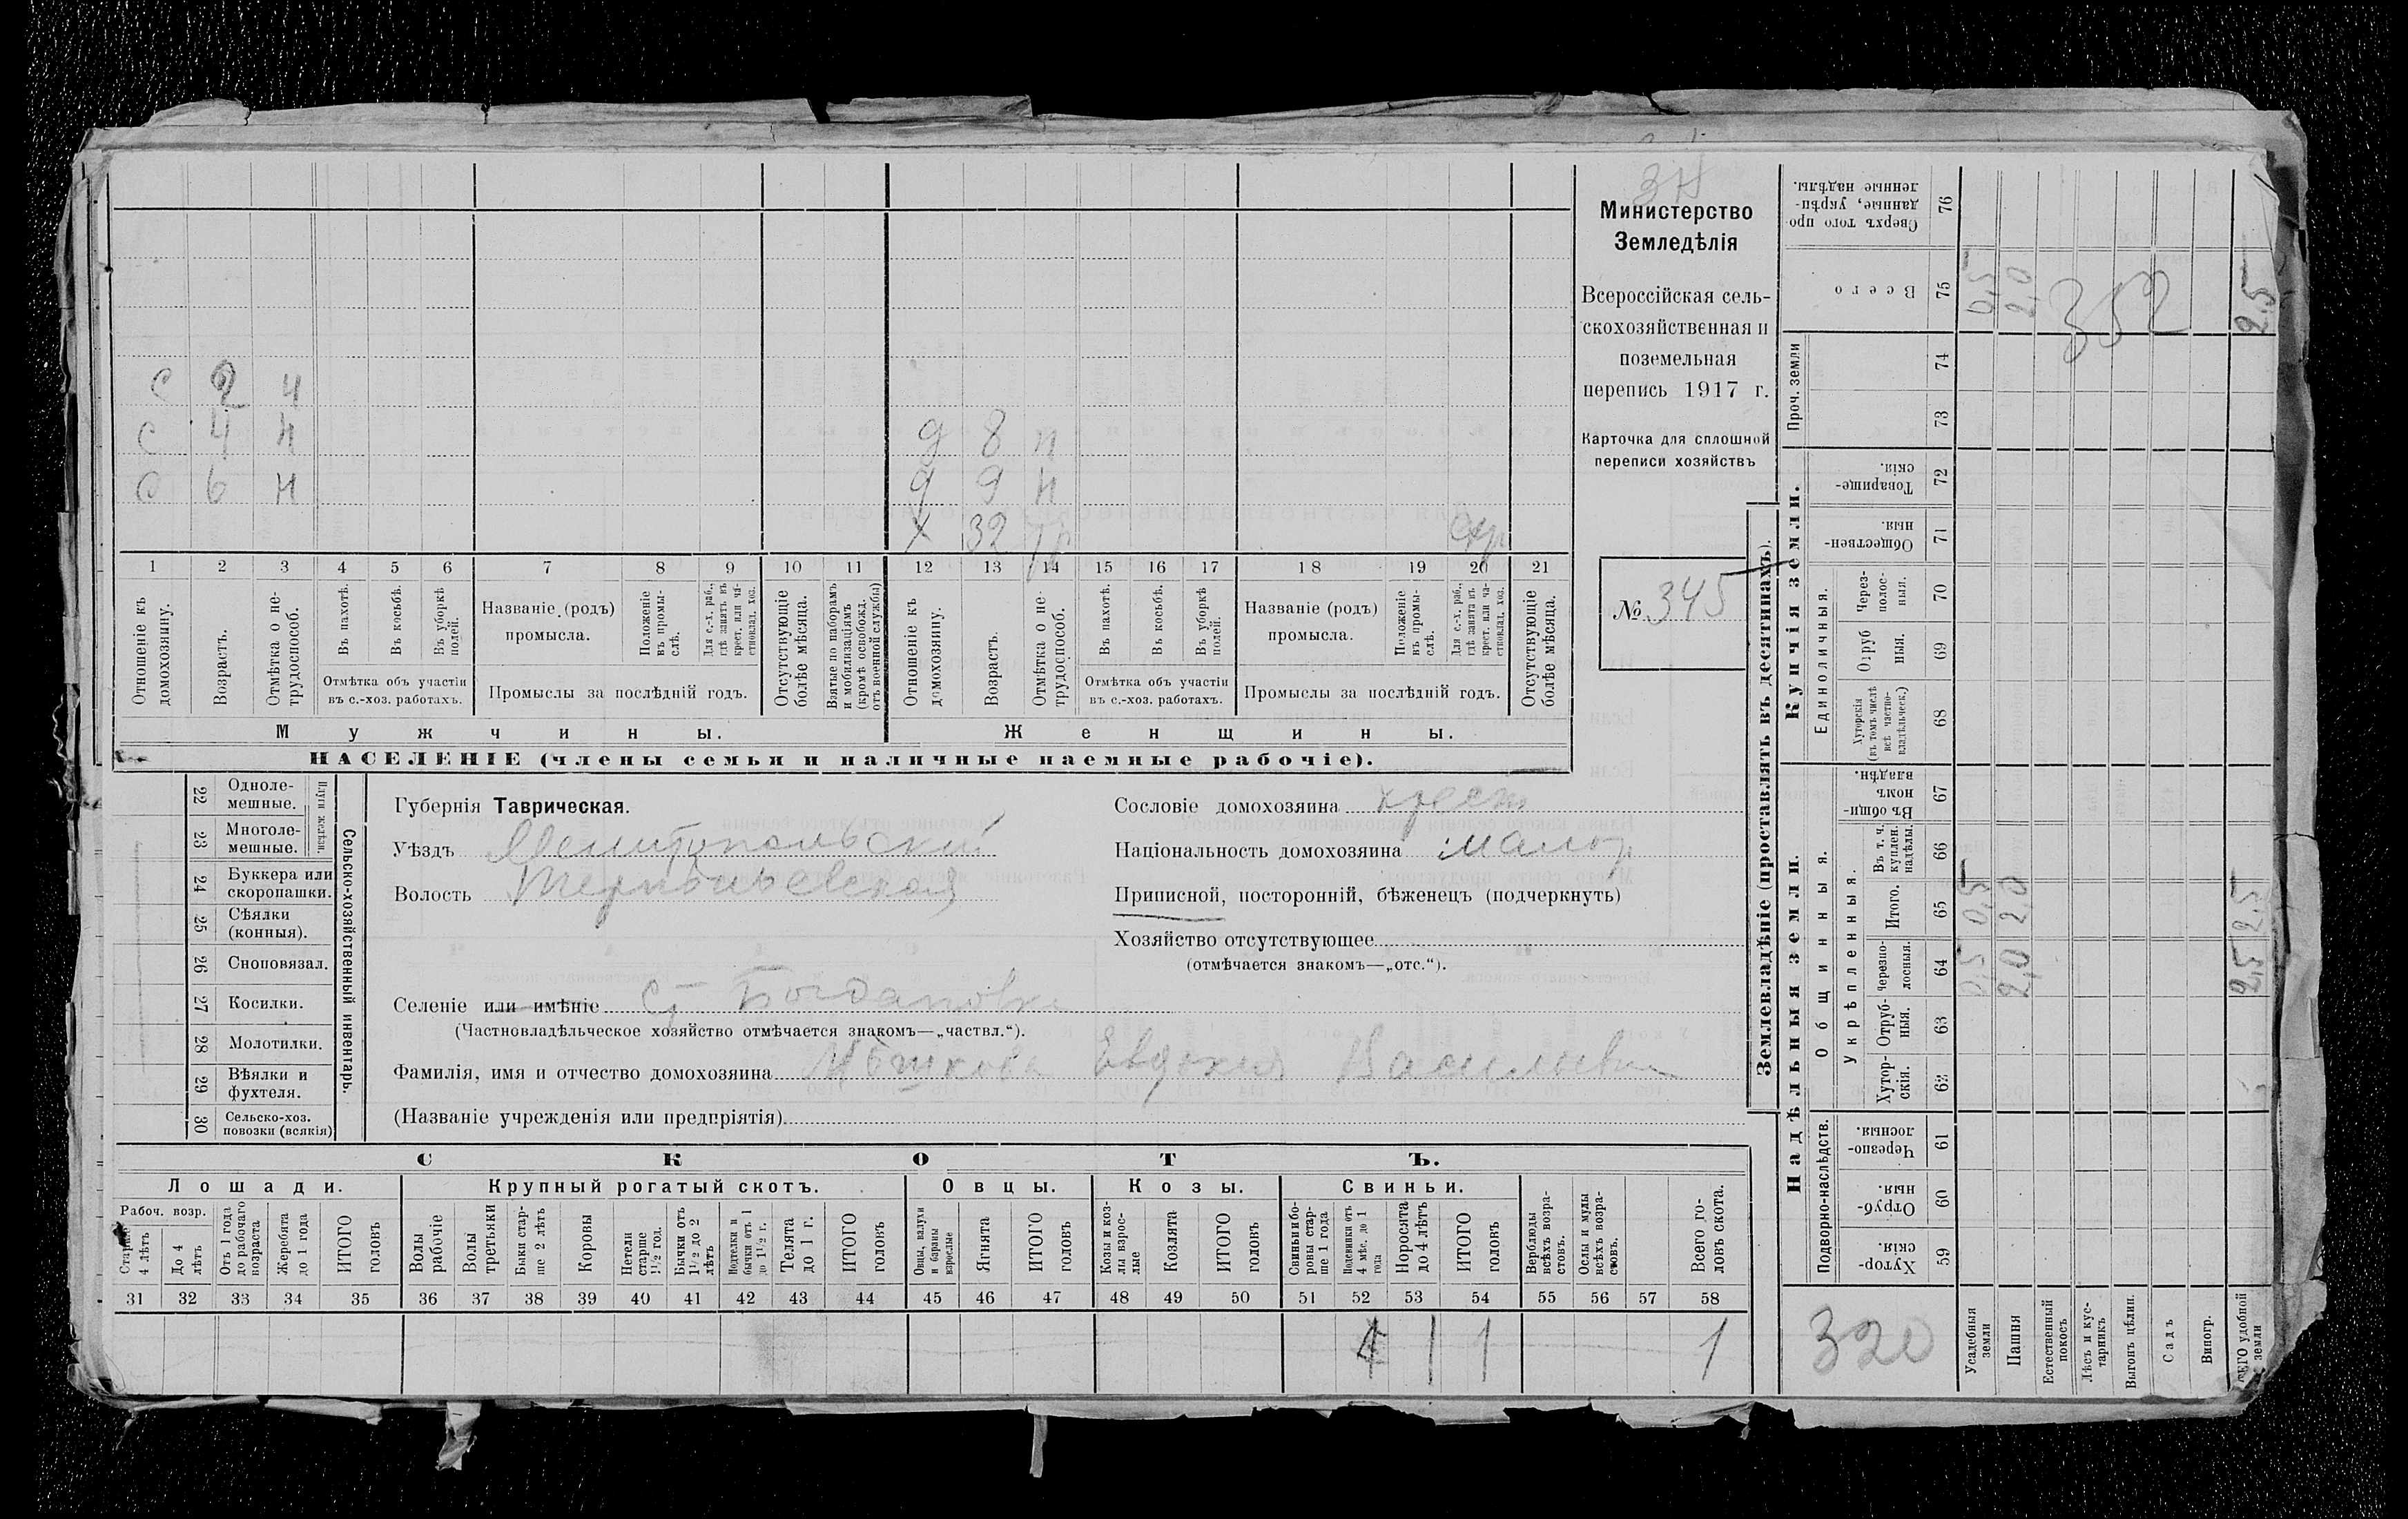 3Н
Министерство
Земледѣлія
Всероссійская сель-
скохозяйственная и
поземельная
перепись 1917 г.
Карточка для сплошной
переписи хозяйствъ
№ 345
с 2 н
с 4 н д 8 н
с 6 н д 9 н
х 32
1 2 3 4 5 6 7 8 9 10 11 12 13 14 15 16 17 18 19 20 21
Отношеніе къ домохозяину.
Возрастъ.
Отмѣтка о не-трудоспособ.
Въ пахотѣ.
Въ косьбѣ.
Въ уборкѣ полей.
Отмѣтка объ участіи
въ с.-хоз. работахъ.
Названіе (родъ)
промысла.
Положеніе въ промы-слѣ.
Для с.-х. раб., гдѣ занятъ въ крест. или ча-стновлад. хоз.
Промыслы за послѣдній годъ.
Отсутствующіе болѣе мѣсяца.
Взятые по наборамъ и мобилизаціямъ (кромѣ освобожд. отъ военной службы)
Отношеніе къ домохозяину.
Возрастъ.
Отмѣтка о не-трудоспособ.
Въ пахотѣ.
Въ косьбѣ.
Въ уборкѣ полей.
Отмѣтка объ участіи
въ с.-хоз. работахъ.
Названіе (родъ)
промысла.
Положеніе въ промы-слѣ.
Для с.-х. раб., гдѣ занята въ крест. или ча-стновлад. хоз.
Промыслы за послѣдній годъ.
Отсутствующіе болѣе мѣсяца.
Мужчины. Женщины.
НАСЕЛЕНІЕ (члены семьи и наличные наемные рабочіе).
22 Одноле-мешные.
23 Многоле-мешные.
Плуги желѣзн.
24 Буккера или скоропашки.
25 Сѣялки (конныя).
26 Сноповязал.
27 Косилки.
28 Молотилки.
29 Вѣялки и фухтеля.
30 Сельско-хоз. повозки (всякія)
Сельско-хозяйственный инвентарь.
Губернія Таврическая.
Уѣздъ Мелитопольский
Волость
Селеніе или имѣніе Богдановка
(Частновладѣльческое хозяйство отмѣчается знакомъ—„частвл.“).
Фамилія, имя и отчество домохозяина Мѣшкова Евдокия Васильевна
(Названіе учрежденія или предпріятія)
Сословіе домохозяина крест
Національность домохозяина малор
Приписной, посторонній, бѣженецъ (подчеркнуть)
Хозяйство отсутствующее
(отмѣчается знакомъ—„отс.“).
СКОТЪ.
Лошади. Крупный рогатый скотъ. Овцы. Козы. Свиньи.
Рабоч. возр.
Старше 4 лѣтъ
До 4 лѣтъ
Отъ 1 года до рабочаго возраста
Жеребята до 1 года
ИТОГО головъ
Волы рабочіе
Волы третьяки
Быки стар-ше 2 лѣтъ
Коровы
Нетели старше 1½ год.
Бычки отъ 1½ до 2 лѣтъ
Подтелки и бычки отъ 1 до 1½ г.
Телята до 1 г.
ИТОГО головъ
Овцы, валухи и бараны взрослые
Ягнята
ИТОГО головъ
Козы и коз-лы взрос-лые
Козлята
ИТОГО головъ
Свиньи и бо-ровы стар-ше 1 года
Подсвинки отъ 4 мѣс. до 1 года
Поросята до 4 лѣтъ
ИТОГО головъ
Верблюды всѣхъ возра-стовъ.
Ослы и мулы всѣхъ возра-стовъ.
Всего го-ловъ скота.
31 32 33 34 35 36 37 38 39 40 41 42 43 44 45 46 47 48 49 50 51 52 53 54 55 56 57 58
1 1 1
Землевладѣніе (проставлять въ десятинахъ).
Надѣльныя земли.
Купчія земли.
Проч. земли
Подворно-наслѣдств.
Общинныя.
Укрѣпленныя.
Единоличныя.
59 Хутор-скія.
60 Отруб-ныя.
61 Черезпо-лосныя.
62 Хутор-скія.
63 Отруб-ныя.
64 Черезпо-лосныя. 0,5 2,0 2,5
65 Итого. 0,5 2,0 2,5
66 Въ т. ч. куплен. надѣлы.
67 Въ общи-номъ владѣн.
68 Хуторскія (въ томъ числѣ всѣ частно-владѣльческ.)
69 Отруб ныя.
70 Через-полос-ныя.
71 Обществен-ныя.
72 Товарище-скія.
73
74
75 Всего 0,5 2,0 2,5
76 Сверхъ того про-данные, укрѣп-ленные надѣлы.
352
320
Усадебныя земли
Пашня
Естественный покосъ
Лѣсъ и кус-тарникъ
Выгонъ цѣлин.
Садъ
Виногр.
ВСЕГО удобной земли